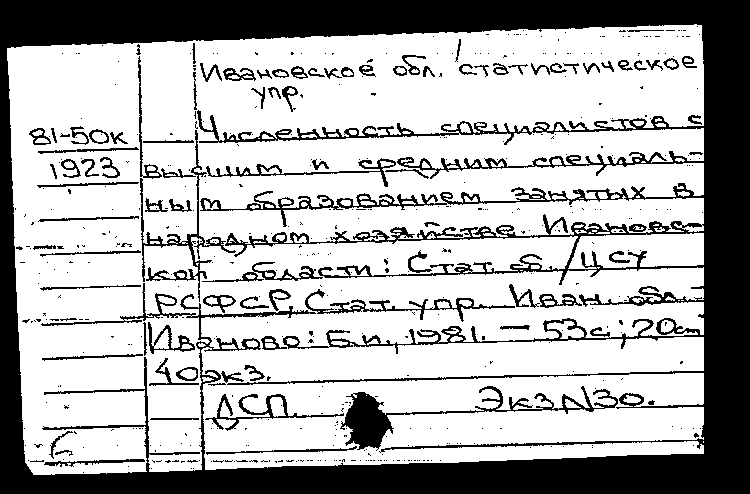 Ивановское обл. статистическое
упр.
81-50к
1923
Численность специалистов с
высшим и средним специаль-
ным образованием занятых в
народном хозяйстве Ивановс-
кой области: Стат. сб. / ЦСУ
РСФСР, Стат. упр. Иван. обл. -
Иваново: Б.и., 1981. - 53с.; 20см
40экз.
ДСП. Экз N30.